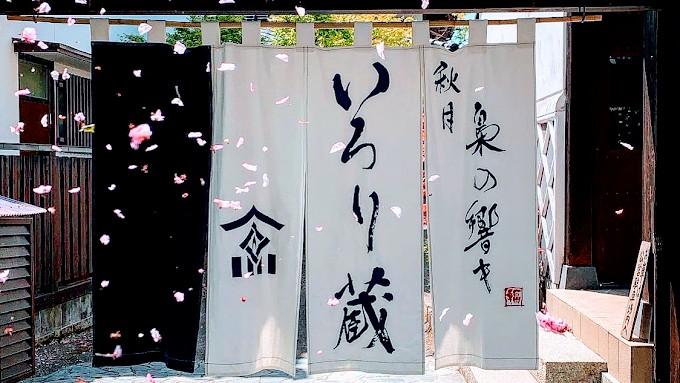 梟の響き
秋月
いろり蔵